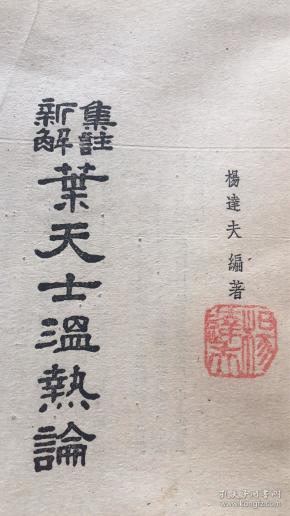 楊達夫 編著
集註
新解
葉天士溫熱論
孔夫子旧书网